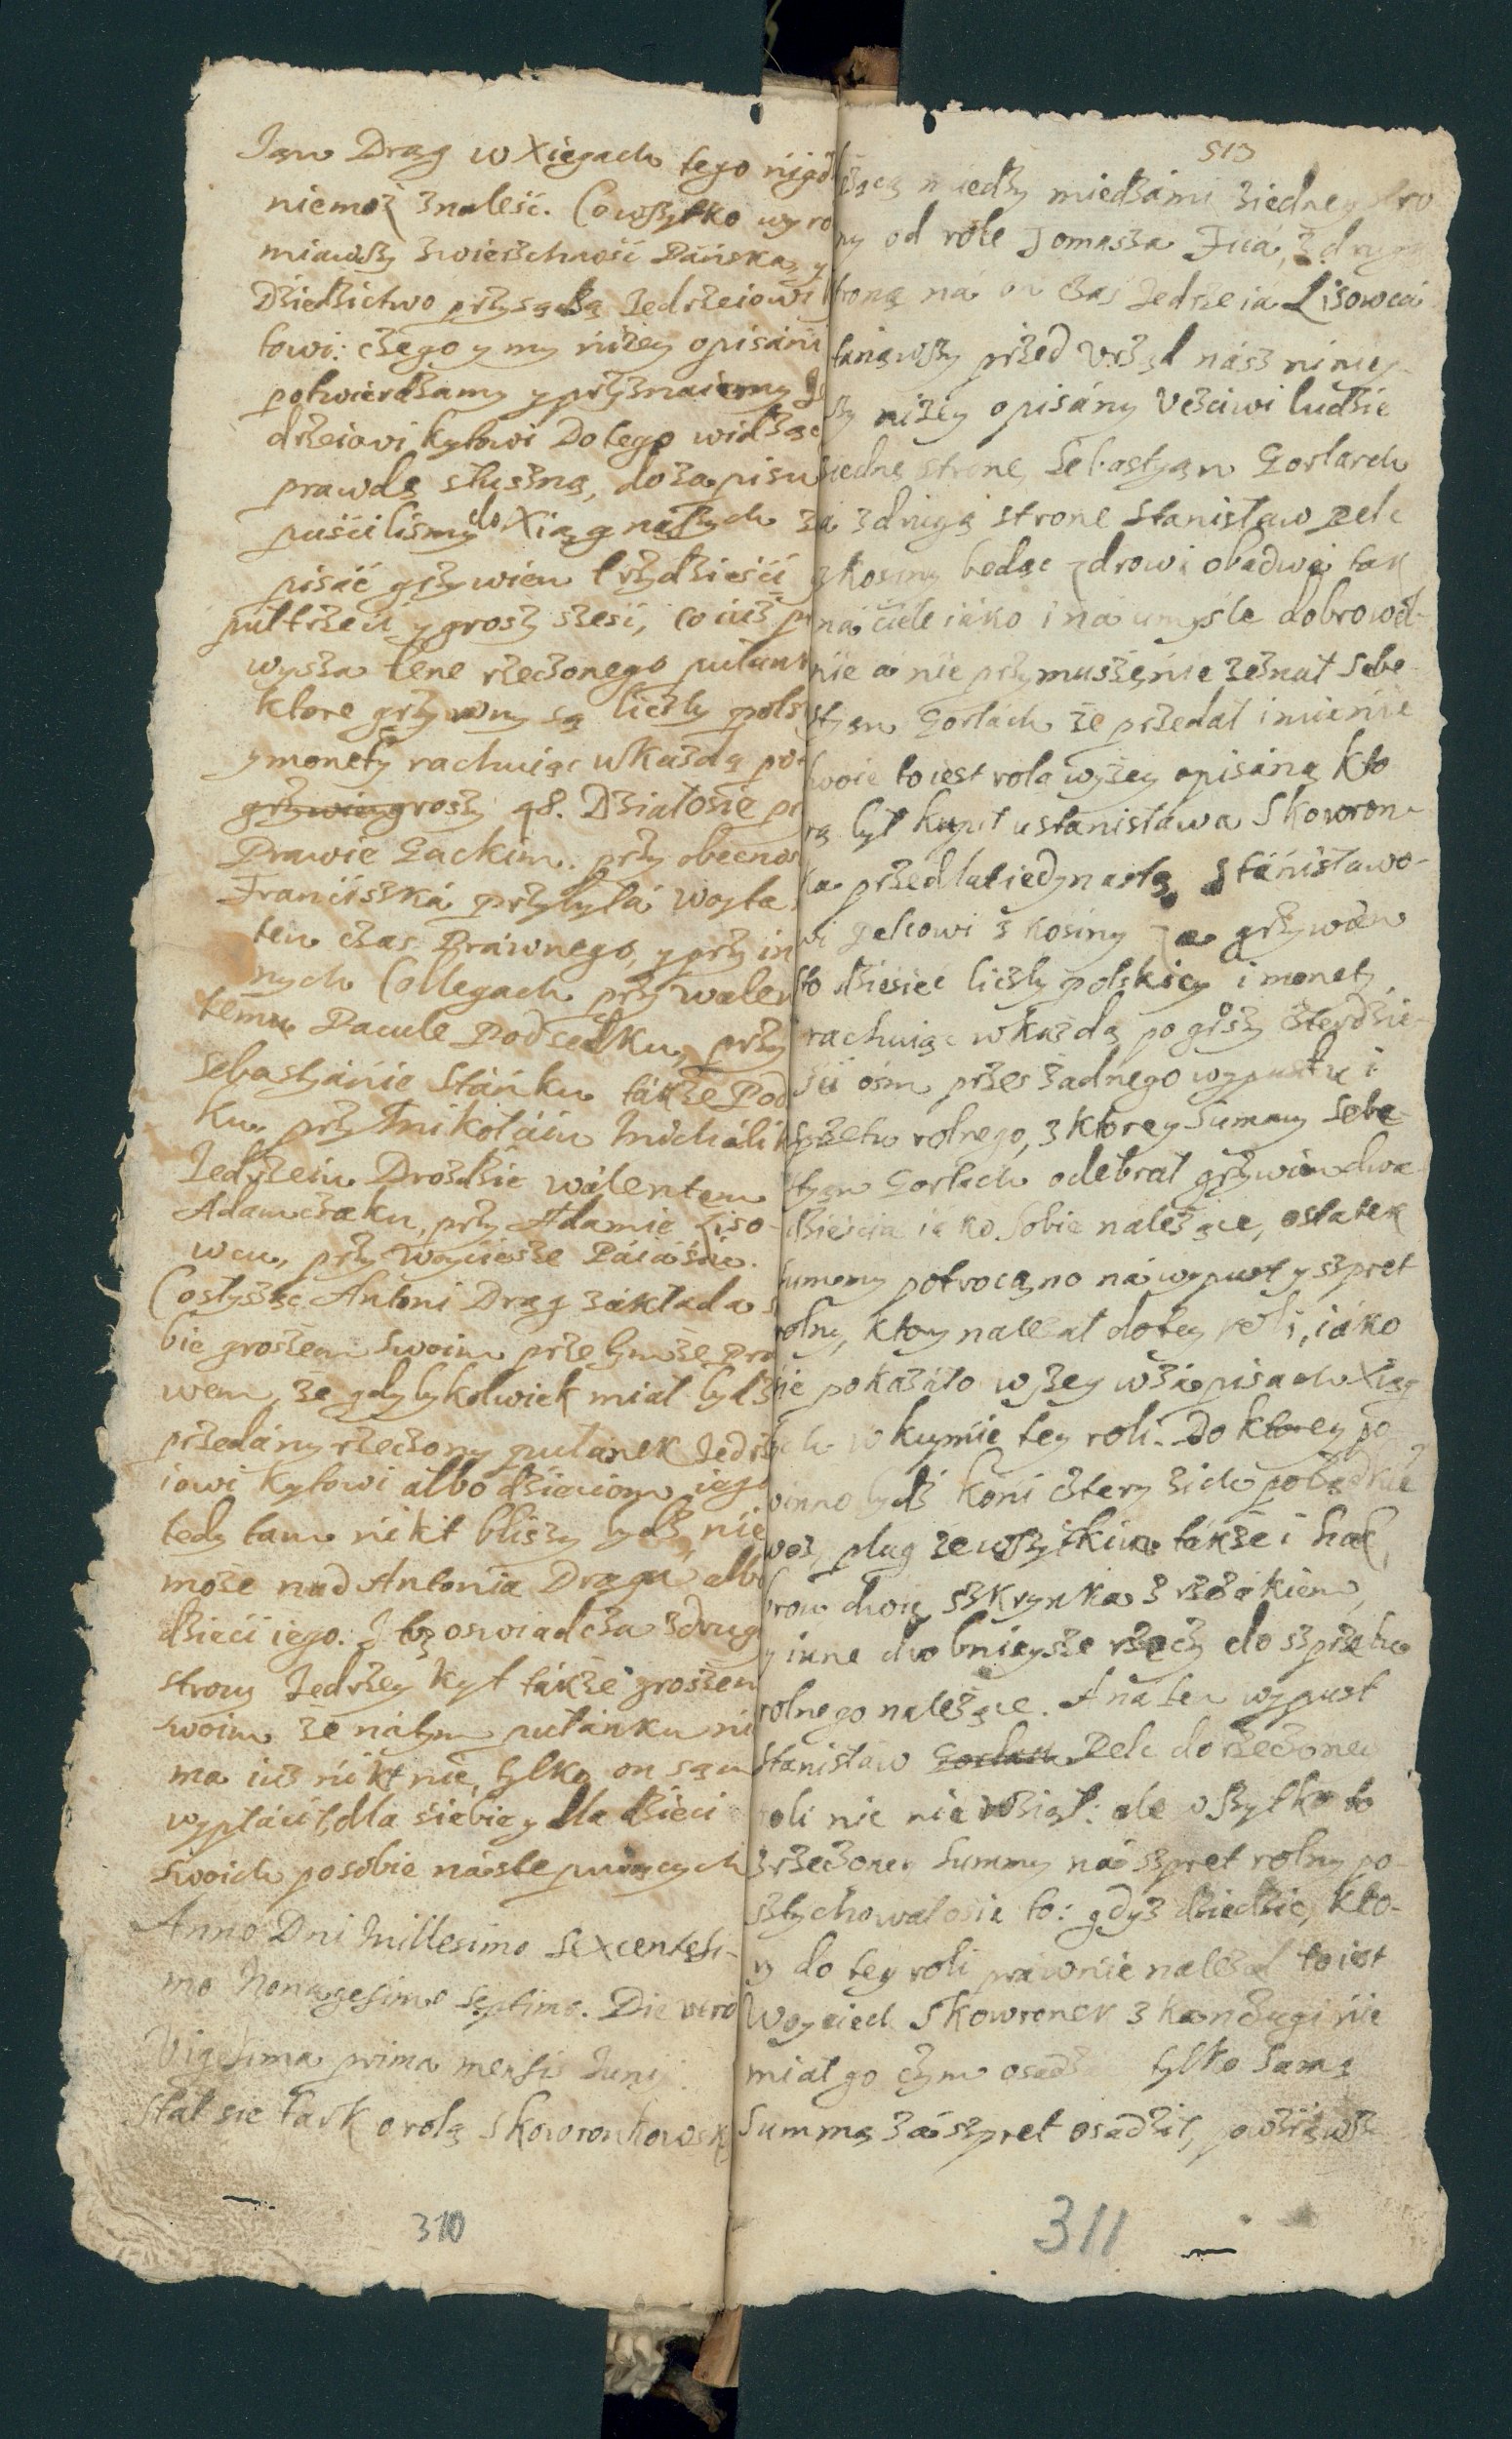 Jan Drąg w Xięgach tego nigd
niemoż znaleść. Co wszytko wyro
miawszy zwierzchność Pańska, y
Dziedzictwo przysądza Jedrzeiowi
towi: czego y my niżey opisáni
potwierdzamy y przyznaiemy Je
drzeiowi Kytowi Do tego widząc
prawdę słuszną, do zapisu
puścilismy do Xiąg nászych za
pisáć grzywien trzydzieści
pułtrzeci y groszy szesć, co iusz
wysza tene rzeczonego pułank
ktore grzywny są liczby pols
y monety rachuiąc w Każdą po
grzywien groszy 48. Działosie pr
Prawie Gackim. przy obecnos
Franciszká przybyłá woyta,
ten czas Práwnego, y przy in
nych Collegach przy walen
temu Pacule Podsedku, przy
Sebastyánie Stáńku tákże Pod
ku. przy Mikołáiu Michálik
Jedrzeiu Droździe wálentem
Adamczaku, przy Adamie Liso-
wcu, przy Woyciesze Páiáśie.
Costyszsę Antoni Drąg zákłada s
bie groszem swoim przetymże Pra
wem, że gdybykolwiek miał bydz
przedány rzeczony pułanek Jedrz
iowi Kytowi albo dzieciom iego
tedy tam nikt bliszy bydz nie
może nad Antonia Drąga albo
dzieci iego. I toż oswiadcza zdrug
strony Jedrzey Kyt tákże groszem
swoim że nátym pułánku ni
ma iusz nikt nic, tylko on sąm
wypłácił dla siebie y dla dzieci
swoich posobie nástepuiących
Anno Dni Millesimo Sexcentesi-
mo Nonagesimo Septimo. Die vero
Vigesima prima mensis Junij
Stał sie tark o rolą Skowronkowską
513
żącą miedzy miedzámi ziedney stro
ny od role Tomasza Fuiá, z drugą
troną ná on czas Jedrzeiá Lisowcá
tanąwszy przed Vrząd nász niniey-
szy niżey opisány Vczciwi ludzie
ziedną stronę Sebastyąn Gorlach
á zdrugą stronę Stanisław Pelc
z Kosiny będąc zdrowi obadwá tak
ná ciele iáko i ná umyśle dobrowol-
nie a nie przymuszęnie zeznał Seba-
styąn Gorlách że przedał imienie
swoie to iest rola wyżey opisáną kto
rą był kupił u stánisławá Skowron-
ka przed lat iedynastą, Stánisławo-
wi Pelcowi z Kosiny za grzywien
sto dziesieć liczby polskiey i monety
rachuiąc w każdą po grszy czterdzie-
sci ośm przes żadnego wypustu i
szprzetu rolnego, z ktorey Summy Seba-
styąn Gorlach odebrał grzywien dwa
dzieścia iáko Sobie náleżące, ostatek
summy potrocąno ná wypust y szpret
rolny, ktory należał do tey roli, iáko
sie pokazáło wyżey w zápisach Xiąg
tych w kupnie tey roli. Do ktorey po
winno bydz koni cztery zich poządkie
woz, plug ze wszytkim tákże i hak,
bron dwoie, szkrynka z rzezákiem,
y inne drobnieysze rzeczy do szprzetu
rolnego należące. A na ten wypust
Stanisław Gorlach Pelc do rzeczoney
roli nic nie wziął: ale wszytko to
z rzeczoney Summy ná szpret rolny po-
sztychowałosie to: gdysz dziedzic, kto-
ry do tey roli práwnie należał to iest
Woyciech Skowronek z Kanczugi nie
miał go czym osadzi tylko Samą
Summą zá szpret osadził, powziąwsz
310
311